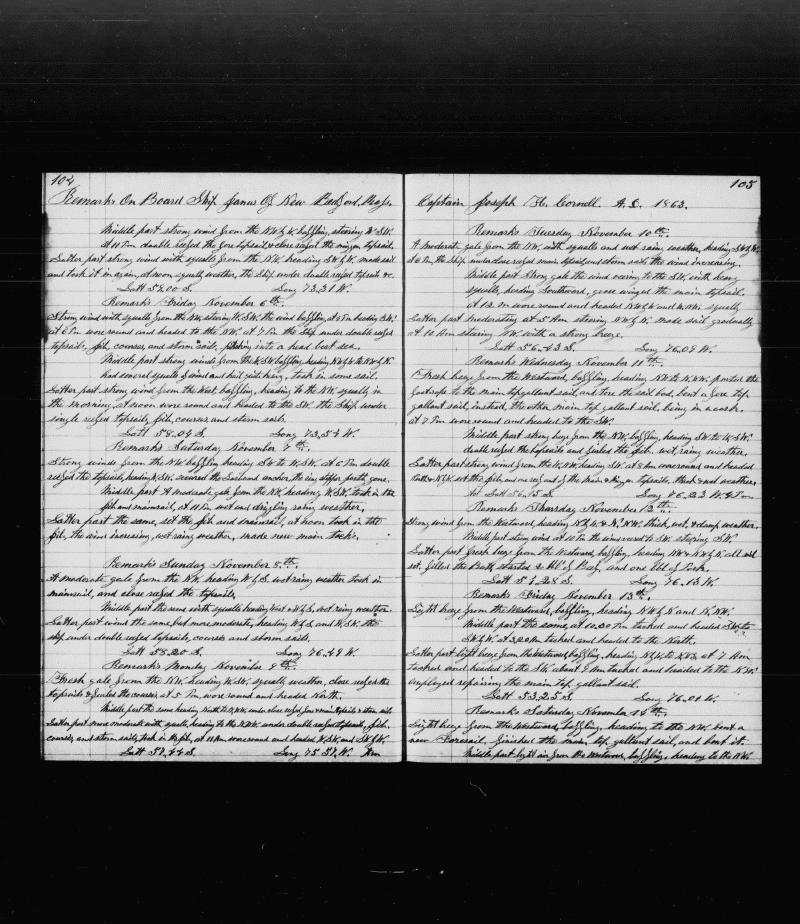 104
Remarks On Board Ship Janus Of New Bedford, Mass,
Middle part strong wind from the NW by W baffling, steering W.SW.
at 11 Pm double reefed the fore topsail, & close reefed the mizzen topsail.
Latter part strong wind with squalls from the NW. heading SW by W. made sail
and took it in again, at noon squally weather, the Ship under double reefed topsails &c.
Latt 57.00 S. Long 73.31 W.
Remarks Friday November 6th.
Strong wind with squalls from the NW steering W.SW. the wind baffling, at 5 Pm heading S.W.
at 6 Pm wore round and headed to the NW. at 7 Pm the Ship under double reefed
topsails, jib, courses, and storm sails, into a head beat sea.
Middle part strong winds from the W.SW baffling, heading NW by W to NW by N.
had several squalls of wind and hail
took in some sail.
Latter part strong wind from the West, baffling, heading to the NW, squally in
the morning, at noon wore round and headed to the SW. the Ship under
single reefed topsails, jib, courses and storm sails.
Latt 58.04 S. Long 73.54 W.
Remarks Saturday November 7th.
Strong winds from the NW baffling heading SW to W.SW. at 6 Pm double
reefed the topsails, heading W.SW. secured the larboard anchor, the ring stopper parts, gone.
Middle part A moderate gale from the NW. heading W.SW. took in the
jib and mainsail, at 11 Pm wet and drizzling rainy weather,
Latter part the same, set the jib and mainsail, at noon took in the
jib, the wind increasing, wet rainy weather, made new main tacks.
Remarks Sunday November 8th.
A moderate gale from the NW. heading W by S. wet rainy weather took in
mainsail, and close reefed the topsails,
Middle part the same with squalls heading West & W by S, wet rainy weather.
Latter part wind the same, but more moderate, heading W by S, and W.SW. the
ship under double reefed topsails, courses and storm sails.
Latt 58.20 S. Long 76.49 W.
Remarks Monday November 9th.
Fresh gale from the NW. heading W.SW. squally weather, close reefed the
topsails & furled the courses, at 5 Pm wore round and headed North.
Middle part the same heading North to N.NW. under close reefed fore & main topsails & storm sails
Latter part more moderate with squalls, heading to the N.NW. under double reefed topsails, jib,
courses, and storm sails, took in the jib, at 11 Am wore round and headed W.SW. and SW by W.
Latt 57.44 S. Long 75 57. W.
105
Captain Joseph H. Cornell A.D. 1863.
Remarks Tuesday November 10th.
A moderate gale from the NW, with squalls and wet rainy weather, heading SW by W.
at 6 Pm the ship under close reefed main topsail and storm sails, the wind increasing.
Middle part strong gale the wind veering to the SW. with heavy
squalls, heading Southward, goose winged the main topsail.
At 12 Pm wore round and headed NW by W and W.NW. squally
Latter part moderating at 5 Am steering NW by W. made sail gradually
at 10 Am steering NW with a strong breeze.
Latt 56.43 S. Long 76.09 W.
Remarks Wednesday November 11th.
Fresh breeze from the Westward, baffling, heading NW to N.NW. parted the
footrope to the main topgallant sail, and tore the sail bad, bent a fore top
gallant sail, instead, the other main top gallant sail, being in a work.
at 7 Pm wore round and headed to the SW.
Middle part strong breeze from the NW, baffling, heading SW to W.SW.
double reefed the topsails and furled the jib. wet, rainy weather.
Latter part strong wind from the W.NW. heading SW. at 8 Am wore round and headed
North & N by W. set the jib, and one reef out of the Main & Mizzen topsails. thick and wet weather.
Latt 56.15 S. Long 76.23 W.
Remarks Thursday November 12th.
Strong wind from the Westward, heading N by W. & N.NW. thick, wet, & damp weather.
Middle part strong wind at 10 Pm the wind veered to SW. steering SW.
Latter part fresh breeze from the Westward, baffling, heading NW & NW by N. all sail
set. filled the Bath, started a Bbl of Beef, and one Bbl of Pork.
Latt 54.28 S. Long 76.13 W.
Remarks Friday November 13th.
Light breeze from the Westward, baffling, heading NW by N and N.NW.
Middle part the same, at 10.20 Pm tacked and headed SW to
SW by W. at 3.20 Am tacked and headed to the North.
Latter part light breeze from the Westward, baffling, heading N by W. to N.NW. at 7 Am
tacked and headed to the SW. about 9 Am tacked and headed to the N.W.
employed repairing the main top gallant sail.
Latt 53.25 S. Long 76.01 W.
Remarks Saturday November 14th.
Light breeze from the Westward, baffling, heading to the NW. bent a
new Foresail. finished the main top gallant sail, and bent it.
Middle part light air from the Westward, baffling, heading to the NW.